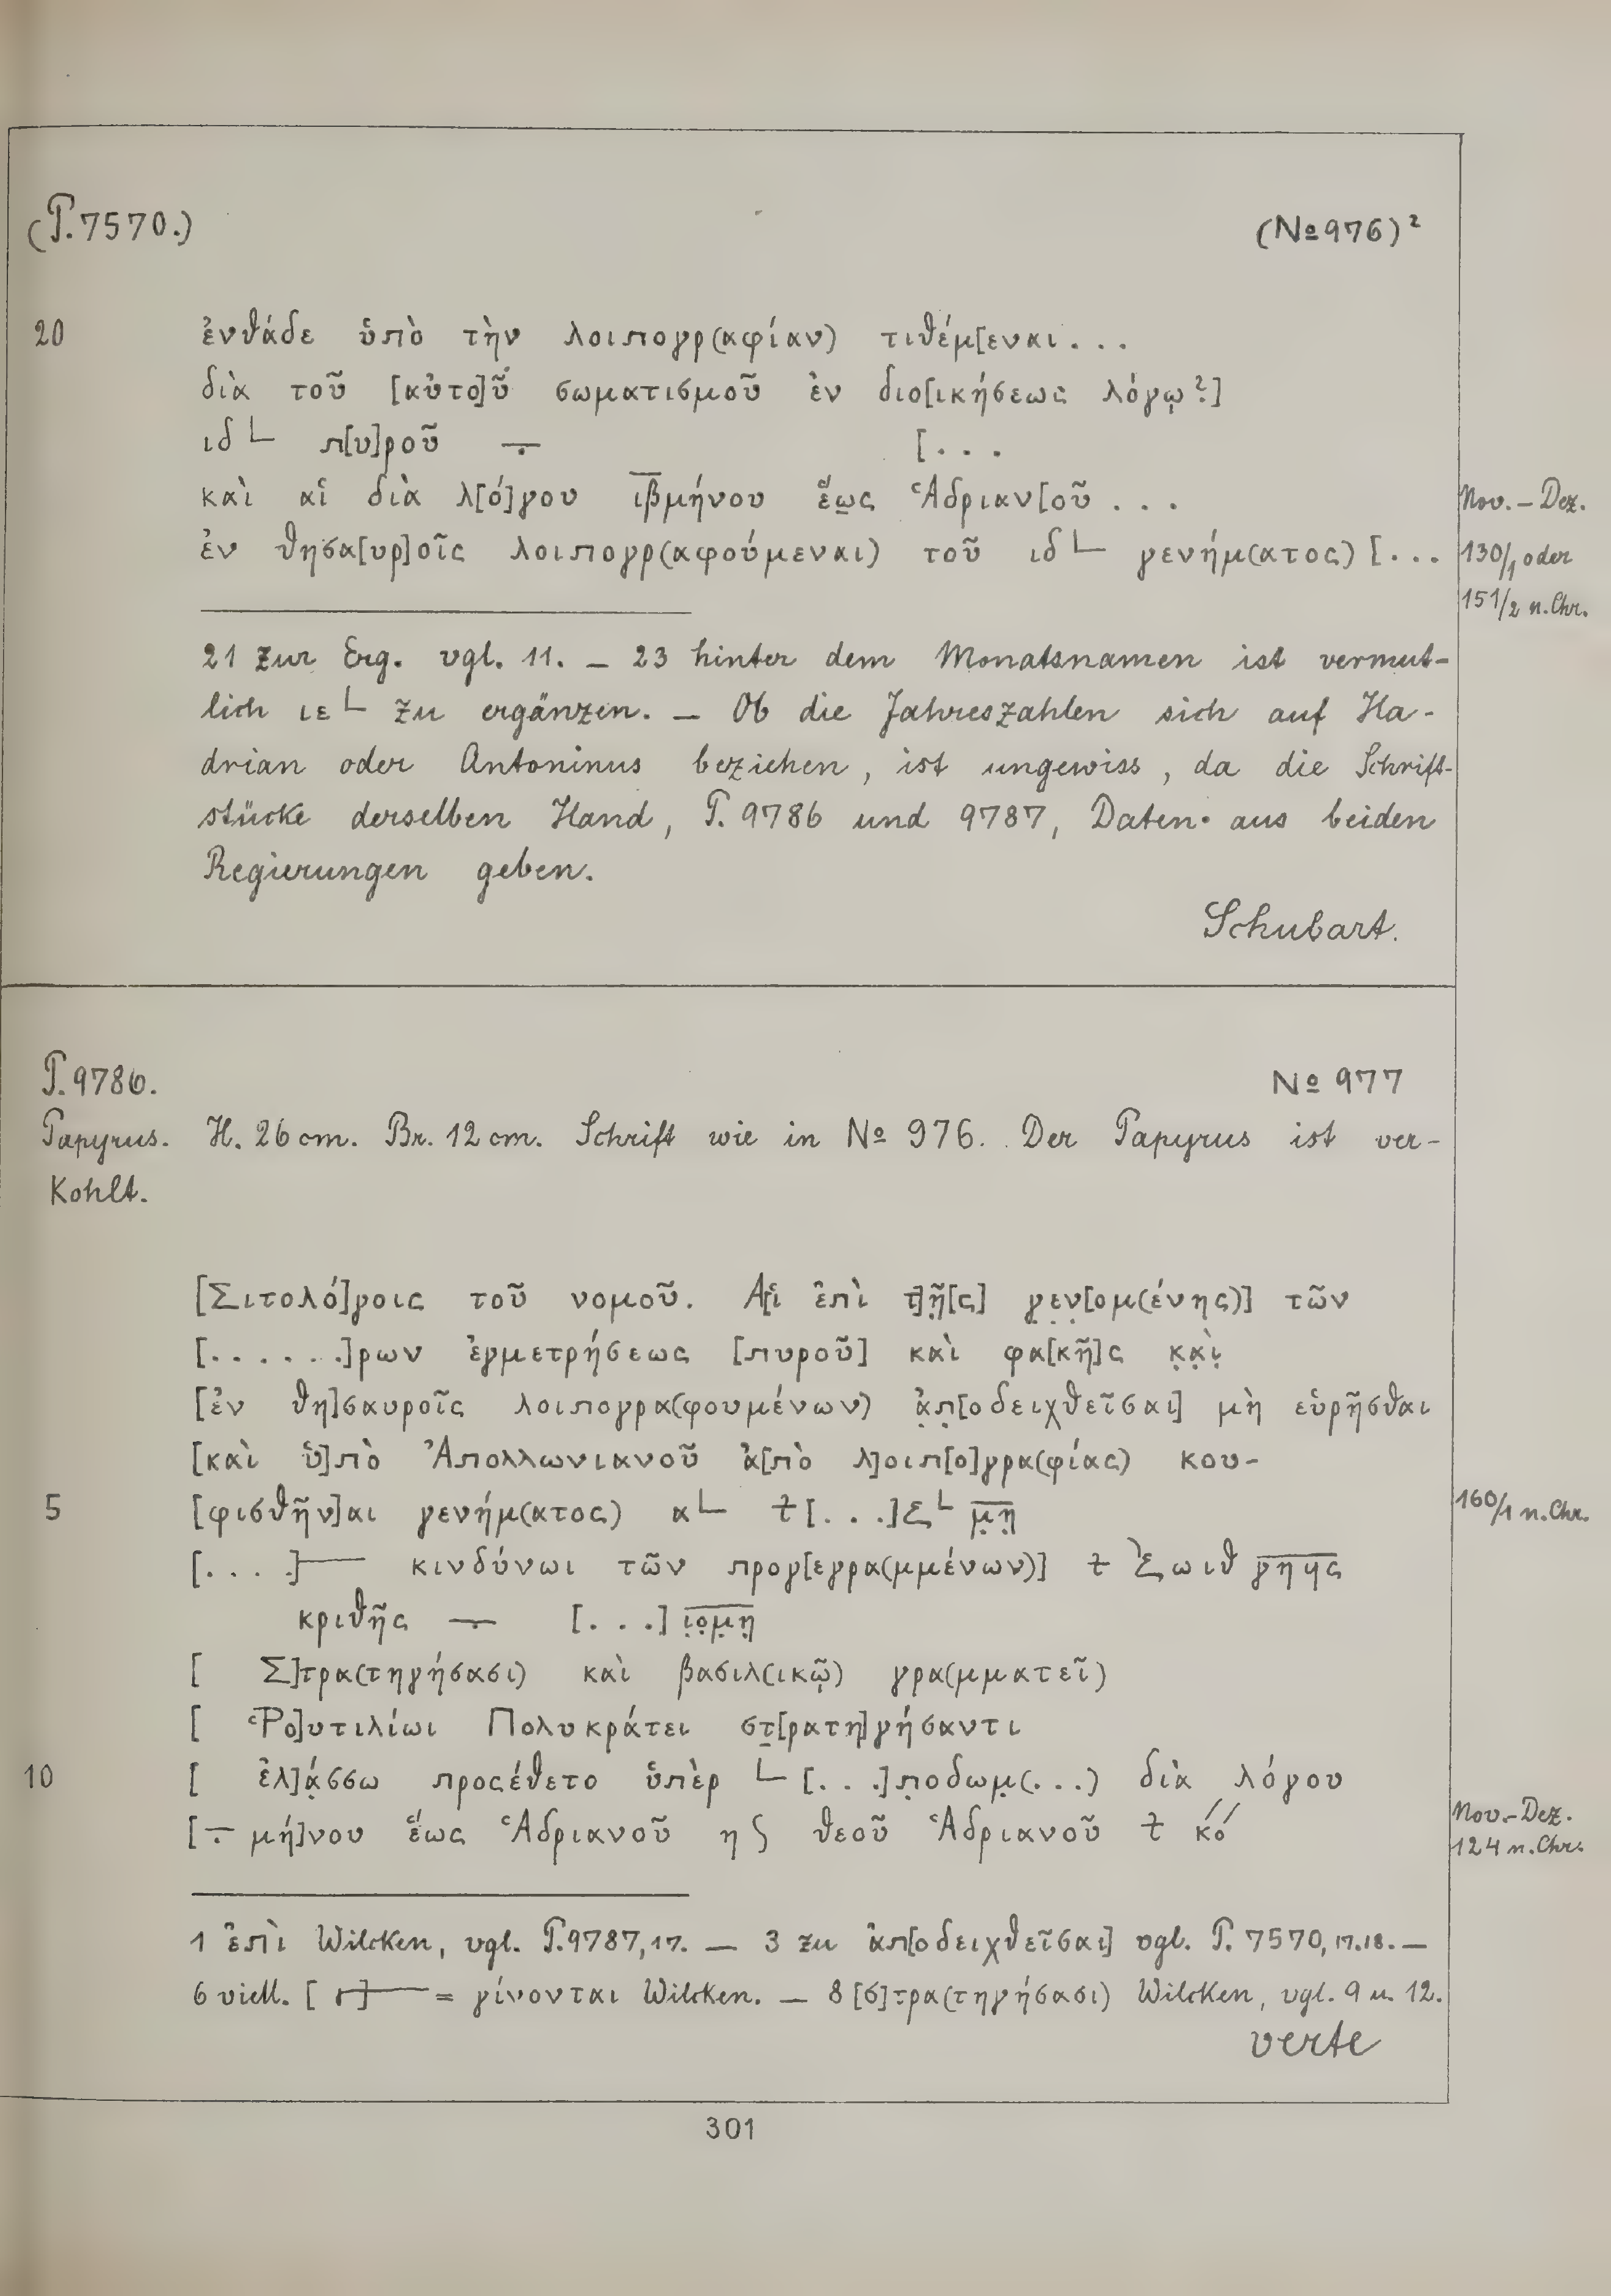 (P. 7570.) (№ 976)²
20 ἐνθάδε ὑπὸ τὴν λοιπογρ(αφίαν) τιθέμ[εναι . . .
διὰ τοῦ [αὐτο]ῦ σωματισμοῦ ἐν διο[ικήσεως λόγῳ?]
ιδ L π[υ]ροῦ ⨪ [. . .
καὶ αἱ διὰ λ[ό]γου ι̅β̅μήνου ἕως Ἁδριαν[οῦ . . . Nov. – Dez.
ἐν θησα[υρ]οῖς λοιπογρ(αφούμεναι) τοῦ ιδ L γενήμ(ατος) [. . . 130/1 oder
151/2 n. Chr.
21 zur Erg. vgl. 11. – 23 hinter dem Monatsnamen ist vermut-
lich ιε L zu ergänzen. – Ob die Jahreszahlen sich auf Ha-
drian oder Antoninus beziehen, ist ungewiss, da die Schrift-
stücke derselben Hand, P. 9786 und 9787, Daten aus beiden
Regierungen geben.
Schubart.
P. 9786. № 977
Papyrus. H. 26 cm. Br. 12 cm. Schrift wie in № 976. Der Papyrus ist ver-
kohlt.
[Σιτολό]γοις τοῦ νομοῦ. Α[ἱ ἐπὶ τ]ῆ̣[ς] γ̣ε̣ν̣[ομ(ένης)] τῶν
[. . . . . .]ρων ἐγμετρήσεως [πυροῦ] καὶ φα[κῆ]ς κ̣α̣ὶ̣
[ἐν θη]σαυροῖς λοιπογρα(φουμένων) ἀ̣π̣[οδειχθεῖσαι] μὴ εὑρῆσθαι
[καὶ ὑ]πὸ Ἀπολλωνιανοῦ ἀ[πὸ λ]οιπ[ο]γρα(φίας) κου-
5 [φισθῆν]αι γενήμ(ατος) α L ⟊ [. . .]ξ L μ̣̅η̣̅ 160/1 n. Chr.
[. . . .]— κινδύνωι τῶν προγ[εγρα(μμένων)] ⟊ ξωιθ γ̅η̅ϥ̅ς̅
κριθῆς ⨪ [. . .] ι̣̅ο̣̅μ̣̅η̣̅
[ Σ]τρα(τηγήσασι) καὶ βασιλ(ικῷ) γρα(μματεῖ)
[ Ῥο]υτιλίωι Πολυκράτει στ̣[ρατη]γήσαντι
10 [ ἐλ]ά̣σσω προσέθετο ὑπὲρ L [. . .]π̣οδωμ̣(. . .) διὰ λόγου
[⨪ μή]νου ἕως Ἁδριανοῦ η ʃ θεοῦ Ἁδριανοῦ ⟊ κό// Nov.-Dez.
124 n. Chr.
1 ἐπὶ Wilcken, vgl. P. 9787, 17. – 3 zu ἀπ[οδειχθεῖσαι] vgl. P. 7570, 17. 18. –
6 viell. [ ⲅ]— = γίνονται Wilcken. – 8 [σ]τρα(τηγήσασι) Wilcken, vgl. 9 u. 12.
verte
301